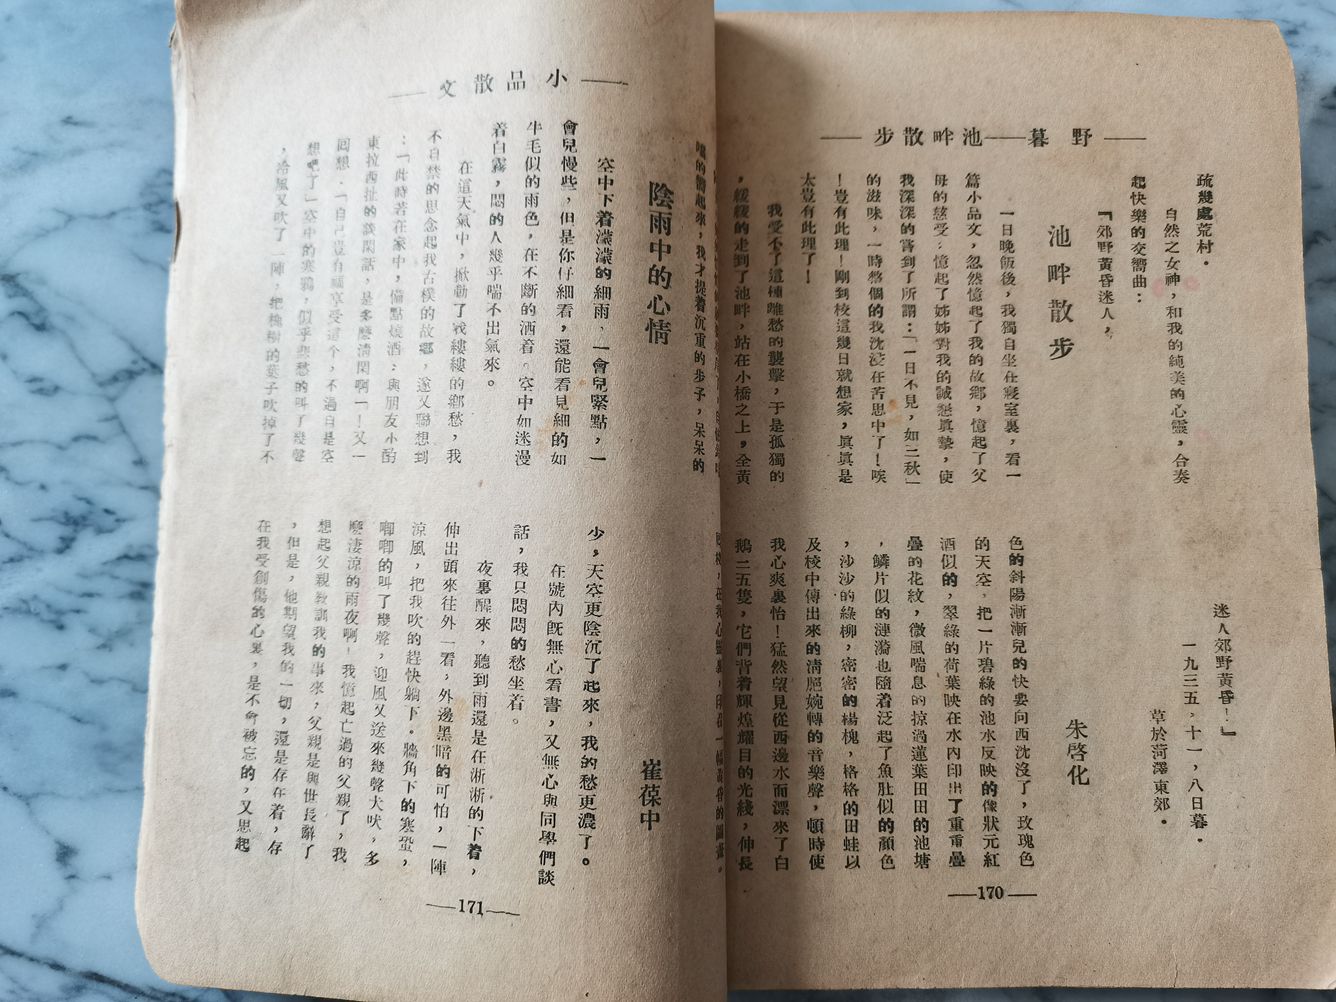 野暮——池畔散步
疏幾處荒村。
自然之女神，和我的純美的心靈，合奏
起快樂的交嚮曲：
「郊野黃昏迷人，
迷人郊野黃昏！」
一九三五，十一，八日暮。
草於菏澤東郊。
池畔散步
朱啓化
一日晚飯後，我獨自坐在寢室裏，看一
篇小品文，忽然憶起了我的故鄉，憶起了父
母的慈愛；憶起了姊姊對我的誠懇眞摯，使
我深深的嘗到了所謂：「一日不見，如三秋」
的滋味，一時整個的我沈浸在苦思中了！唉
！豈有此理！剛到校這幾日就想家，眞眞是
太豈有此理了！
我受不了這種離愁的襲擊，于是孤獨的
，緩緩的走到了池畔，站在小橋之上，全黃
色的斜陽漸漸兒的快要向西沈沒了，玫瑰色
的天空，把一片碧綠的池水反映的像狀元紅
酒似的，翠綠的荷葉映在水內印出了重重疊
疊的花紋，微風喘息的掠過蓮葉田田的池塘
，鱗片似的漣漪也隨着泛起了魚肚似的顏色
，沙沙的綠柳，密密的楊槐，格格的田蛙以
及校中傳出來的淸脆婉轉的音樂聲，頓時使
我心爽裏怡！猛然望見從西邊水面漂來了白
鵝二五隻，它們背着輝煌耀目的光綫，伸長
—170—
小品散文
的響起來，我才提着沉重的步子，呆呆的
陰雨中的心情
崔葆中
空中下着濛濛的細雨，一會兒緊點，一
會兒慢些，但是你仔細看，還能看見細的如
牛毛似的雨色，在不斷的洒着。空中如迷漫
着白霧，悶的人幾乎喘不出氣來。
在這天氣中，掀動了我縷縷的鄉愁，我
不自禁的思念起我古樸的故鄉，遂又聯想到
：「此時若在家中，備點燒酒；與朋友小酌
東拉西扯的談閑話，是多麼淸閑啊—！又一
回想．「自己豈有福享受這个，不過白是空
想吧了」空中的寒鴉，似乎悲愁的叫了幾聲
，冷風又吹了一陣，把槐樹的葉子吹掉了不
少，天空更陰沉了起來，我的愁更濃了。
在號內旣無心看書，又無心與同學們談
話，我只悶悶的愁坐着。
夜裏醒來，聽到雨還是在淅淅的下着，
伸出頭來往外一看，外邊黑暗的可怕，一陣
涼風，把我吹的趕快躺下。牆角下的寒蛩，
唧唧的叫了幾聲，迎風又送來幾聲犬吠，多
麼淒涼的雨夜啊！我憶起亡過的父親了，我
想起父親教訓我的事來，父親是與世長辭了
，但是，他期望我的一切，還是存在着，存
在我受創傷的心裏，是不會被忘的，又思起
—171—